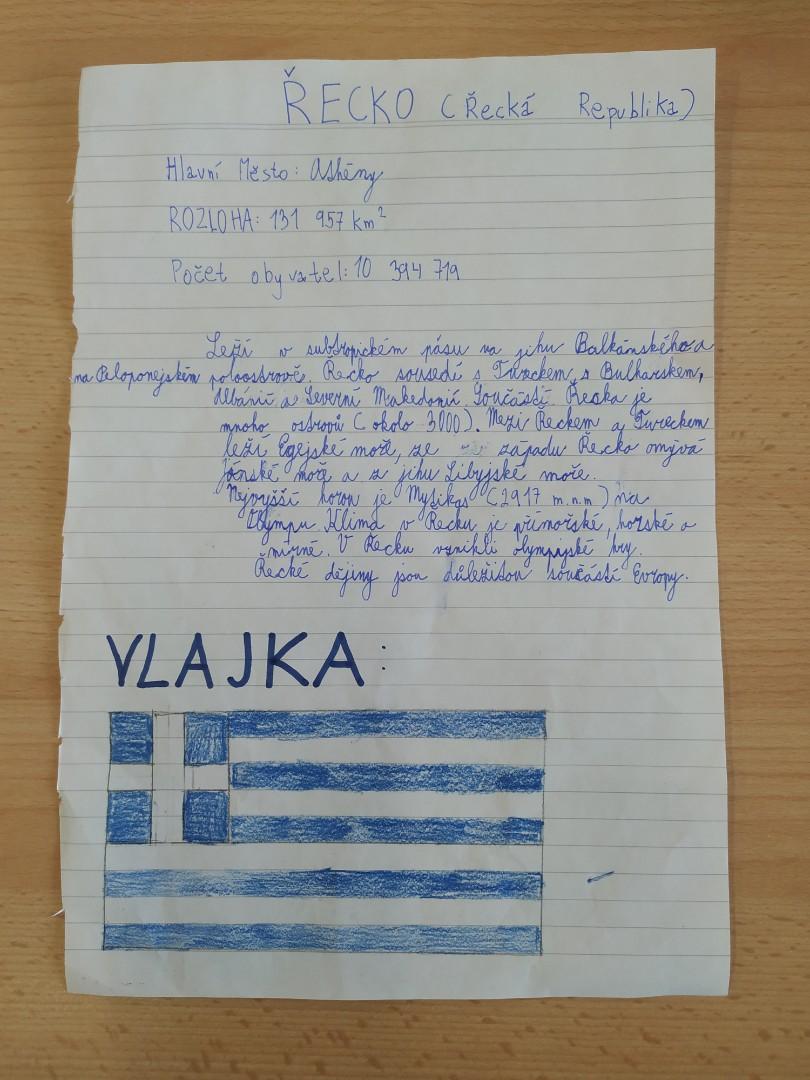 ŘECKO (Řecká Republika)
Hlavní Město: Athény
ROZLOHA: 131 957 km²
Počet obyvatel: 10 394 719
Leží v subtropickém pásu na jihu Balkánského a
na Peloponejském poloostrově. Řecko sousedí s Tureckem, s Bulharskem,
Albánií a Severní Makedonií. Součástí Řecka je
mnoho ostrovů (okolo 3000). Mezi Řeckem a Tureckem
leží Egejské moře, ze západu Řecko omývá
Jónské moře a z jihu Libyjské moře.
Nejvyšší horou je Mytikas (2917 m.n.m) na
Olympu. Klima v Řecku je přímořské, horské a
mírné. V Řecku vznikli olympijské hry.
Řecké dějiny jsou důležitou součástí Evropy.
VLAJKA: